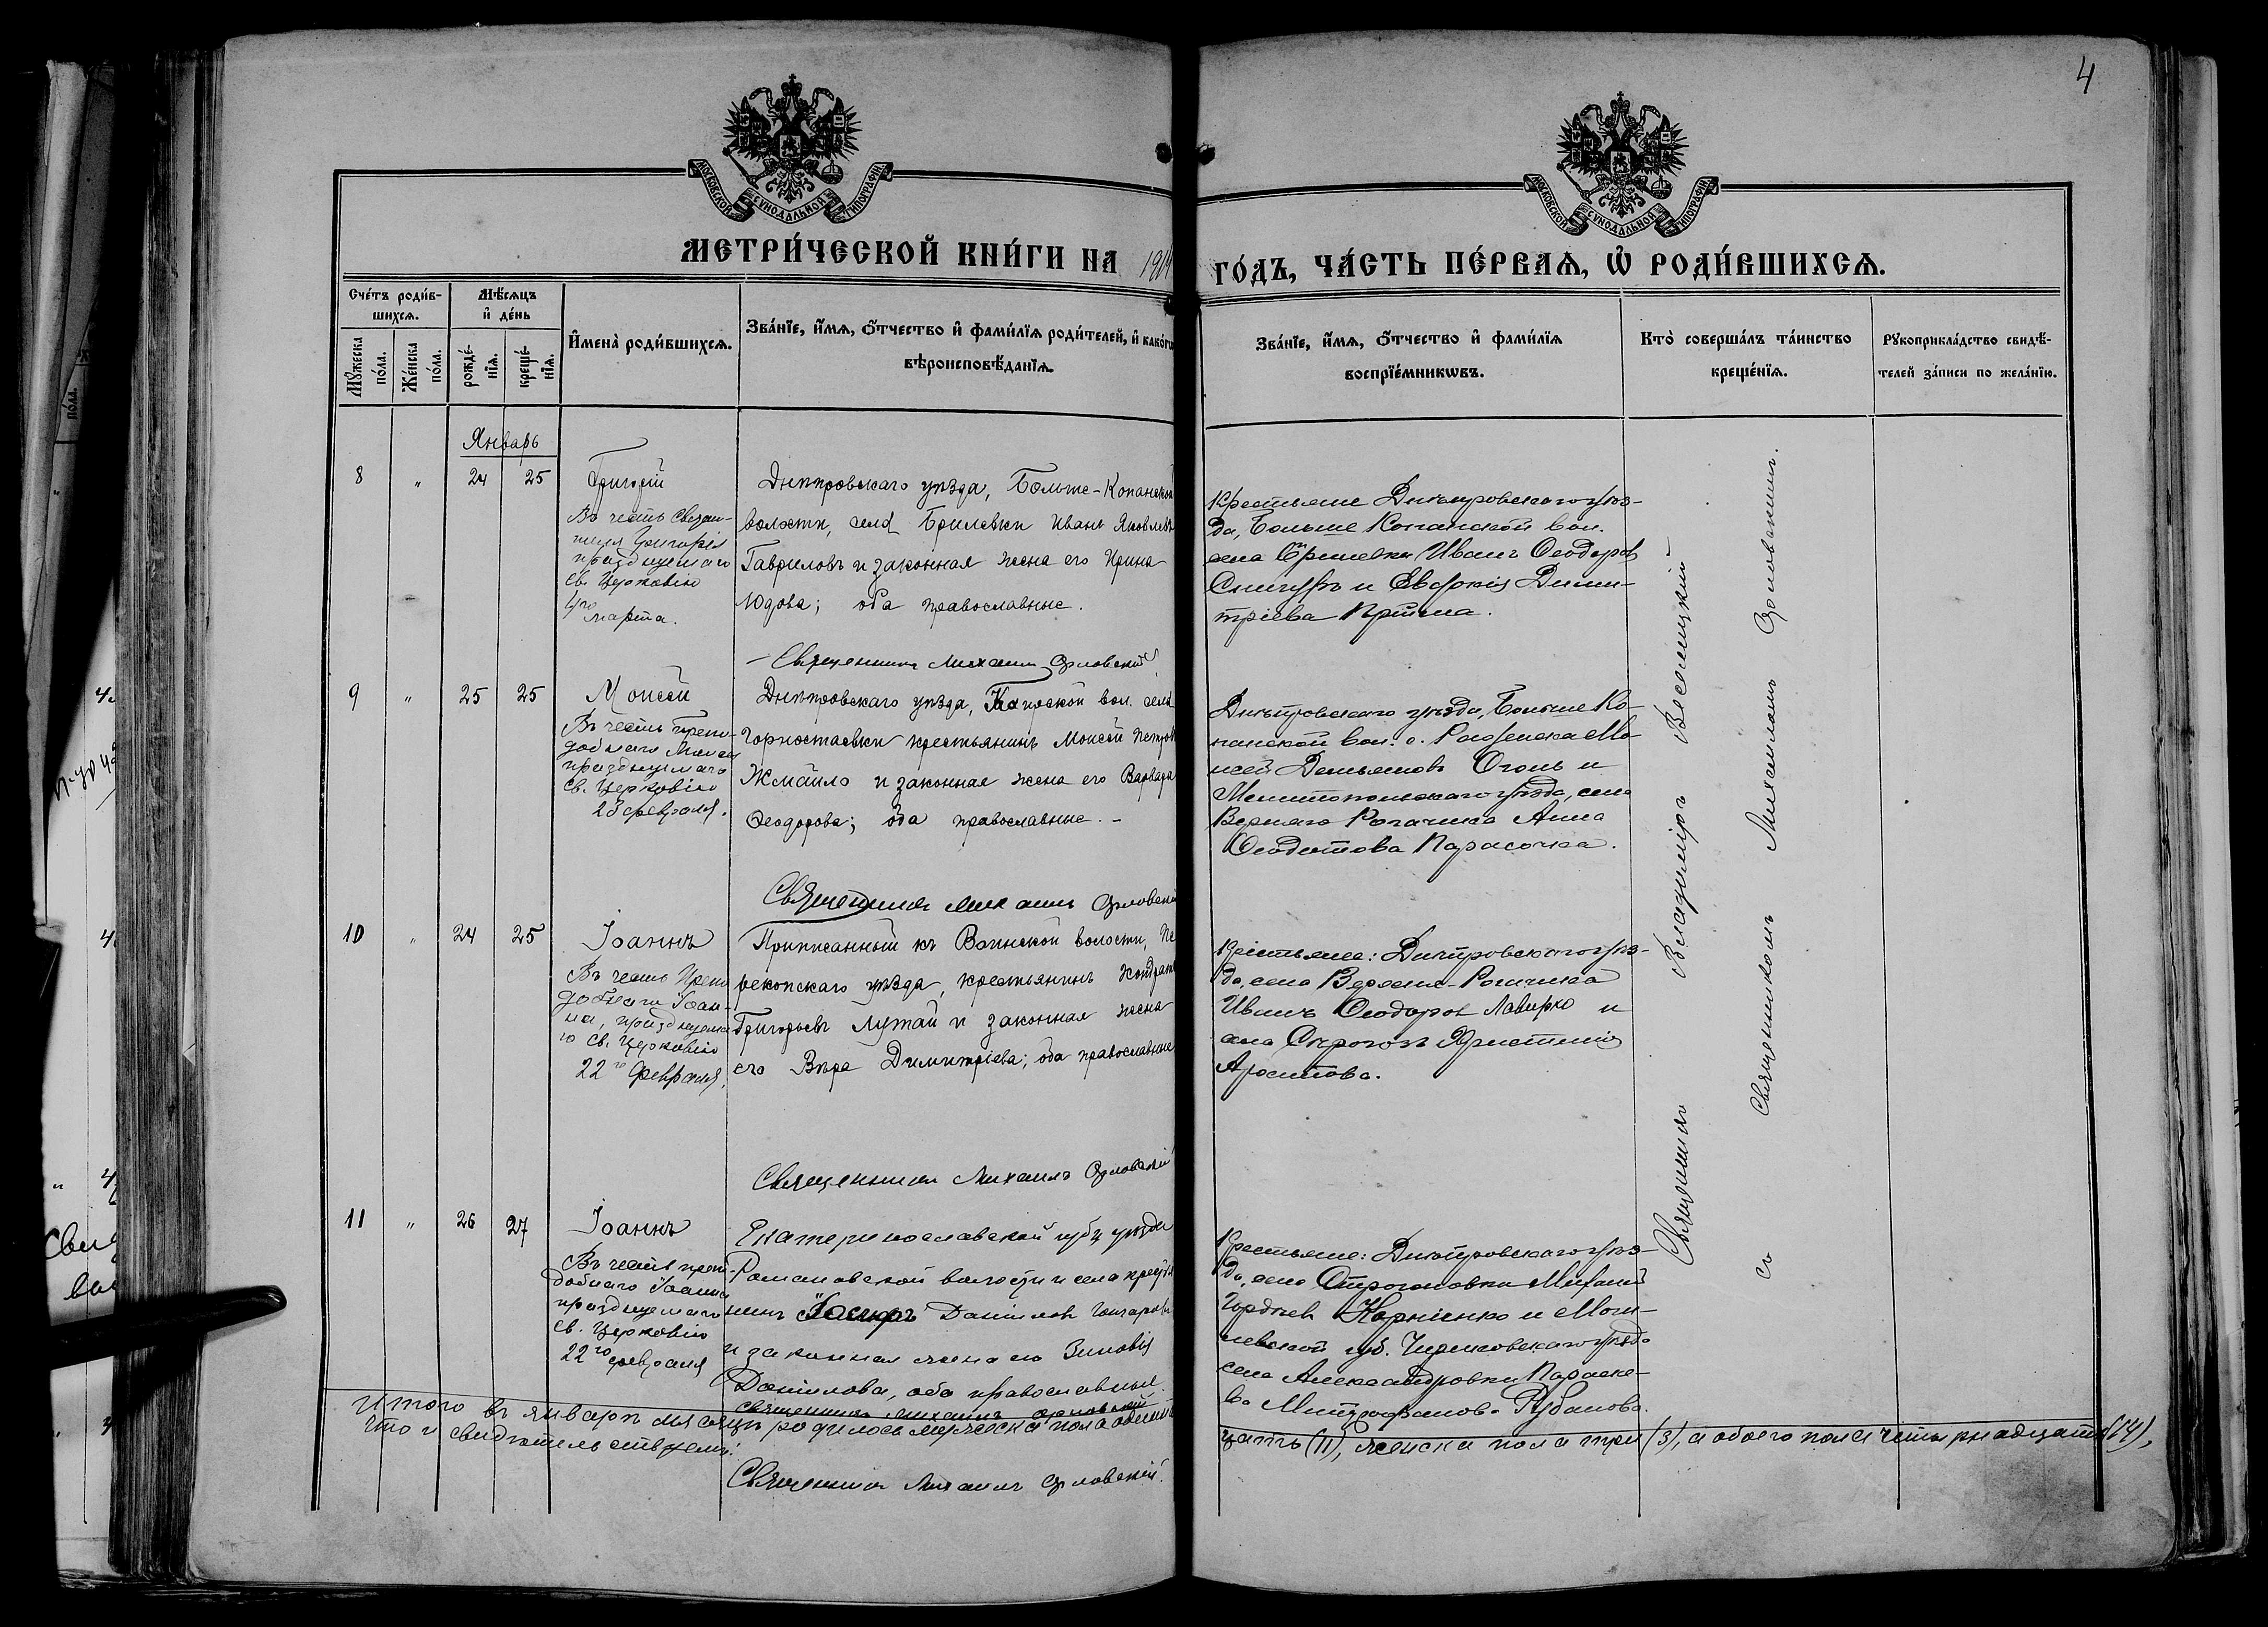 4
МОСКОВСКОЙ СѴНОДАЛЬНОЙ ТИПОГРАФІИ.
МОСКОВСКОЙ СѴНОДАЛЬНОЙ ТИПОГРАФІИ.
МЕТРИ́ЧЕСКОЙ КНИ́ГИ НА
ГО́ДЪ, ЧА́СТЬ ПЕ́РВАѦ, Ѽ РОДИ́ВШИХСѦ.
Сче́тъ роди́в-
шихсѧ.
Мꙋ́жеска
по́ла.
Же́нска
по́ла.
Мѣ́сѧцъ
и҆ де́нь
рожде́-
нїѧ.
креще́-
нїѧ.
И҆мена̀ роди́вшихсѧ.
Зва́нїе, и҆́мѧ, ѻ҆́тчество и҆ фами́лїѧ роди́телей, и҆ како́гѡ
вѣроисповѣ́данїѧ.
Зва́нїе, и҆́мѧ, ѻ҆́тчество и҆ фами́лїѧ
воспрїе́мникѡвъ.
Кто̀ соверша́лъ та́инство
креще́нїѧ.
Рꙋкоприкла́дство свидѣ́-
телей за́писи по жела́нїю.
Январь
8 " 24 25
Григорій
Въ честь Святи-
теля Григорія
празднуемаго
св. Церковію
4го марта.
Днѣпровскаго уѣзда, Больше-Копанской
волости, села Брилевки Иванъ Яковлевъ
Гавриловъ и законная жена его Ирина
Юдова; оба православные.
Священникъ Михаилъ Орловскій
Крестьяне Днѣпровскаго уѣз-
да, Больше Копанской вол.
села Брилевки Иванъ Ѳеодоровъ
Снигуръ и Евдокія Дими-
тріева
9 " 25 25
Моисей
Въ честь Препо-
добнаго Моисея
празднуемаго
св. Церковію
23 февраля.
Днѣпровскаго уѣзда, Каирской вол. села
Горностаевки крестьянинъ Моисей Петровъ
Жмайло и законная жена его Варвара
Ѳеодорова; оба православные. -
Священникъ Михаилъ Орловскій
Днѣпровскаго уѣзда, Больше Ко-
панской вол. с. Раденска Мо-
исей Демьяновъ Огонь и
Мелитопольскаго уѣзда, села
Верхняго Рогачика Анна
Ѳеодотова Парасочка.
10 " 24 25
Іоаннъ
Въ честь Препо
добнаго Іоан-
на, празднуема
го св. Церковію
22го Февраля.
Приписанный къ Воинской волости, Пе
рекопскаго уѣзда, крестьянинъ Кондратъ
Григорьевъ Лутай и законная жена
его Вѣра Димитріева; оба православные
Священникъ Михаилъ Орловскій
Крестьяне: Днѣпровскаго уѣз-
да, села Верхне-Рогачика
Иванъ Ѳеодоровъ Лавирко и
села Сѣрогозъ Христинія
11 " 26 27
Іоаннъ
Въ честь препо-
добнаго Іоанна
празднуемаго
св. Церковію
22го февраля
Екатеринославской губ и уѣзда
Романовской волости и села крестья
нинъ Даніиловъ Гончаровъ
и законная жена его Зиновія
Даніилова, оба православные.
Священникъ Михаилъ Орловскій
Крестьяне: Днѣпровскаго уѣз-
да, села Строгоновки Михаилъ
Гордѣевъ Корніенко и Моги-
левской губ. Чериковскаго уѣзда
села Александровки Параске-
ва Митрофанова Рубанова.
Священникъ Владиміръ Веселицкій
съ Священникомъ Михаиломъ Орловскимъ.
Итого въ январѣ мѣсяцѣ родилось мужеска пола один
цать (11), женска пола три (3), а обоего пола четырнадцать (14),
что и свидѣтельствуемъ:
Священникъ Михаилъ Орловскій.